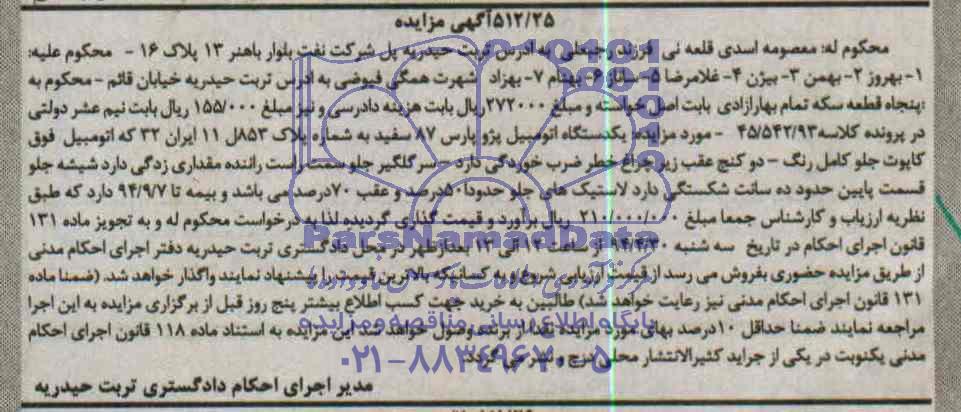 ۵۱۲/۲۵آگهی مزایده
محکوم له: معصومه اسدی قلعه نی فرزند رجبعلی به آدرس تربت حیدریه پل شرکت نفت بلوار باهنر ۱۳ پلاک ۱۶ - محکوم علیه:
۱- بهروز ۲- بهمن ۳- بیژن ۴- غلامرضا ۵- ساناز ۶- بهنام ۷- بهزاد شهرت همگی فیوضی به آدرس تربت حیدریه خیابان قائم - محکوم به
:پنجاه قطعه سکه تمام بهارآزادی بابت اصل خواسته و مبلغ ۲۷۲۰۰۰ریال بابت هزینه دادرسی و نیز مبلغ ۱۵۵/۰۰۰ ریال بابت نیم عشر دولتی
در پرونده کلاسه۴۵/۵۴۲/۹۳ - مورد مزایده: یکدستگاه اتومبیل پژو پارس ۸۷ سفید به شماره پلاک ۸۵۳ل ۱۱ ایران ۳۲ که اتومبیل فوق
کاپوت جلو کامل رنگ - دو کنج عقب زیر چراغ خطر ضرب خوردگی دارد - سر گلگیر جلو سمت راست راننده مقداری زدگی دارد شیشه جلو
قسمت پایین حدود ده سانت شکستگی دارد لاستیک های جلو حدودا۵۰درصد و عقب ۷۰درصد می باشد و بیمه تا ۹۴/۹/۷ دارد که طبق
نظریه ارزیاب و کارشناس جمعا مبلغ ۲۱۰/۰۰۰/۰۰۰ ریال برآورد و قیمت گذاری گردیده لذا به درخواست محکوم له و به تجویز ماده ۱۳۱
قانون اجرای احکام در تاریخ سه شنبه ۹۴/۴/۳۰ از ساعت ۱۲ الی ۱۳ بعدازظهر در محل دادگستری تربت حیدریه دفتر اجرای احکام مدنی
از طریق مزایده حضوری بفروش می رسد از قیمت ارزیابی شروع و به کسانیکه بالاترین قیمت را پیشنهاد نمایند واگذار خواهد شد. (ضمنا ماده
۱۳۱ قانون اجرای احکام مدنی نیز رعایت خواهد شد) طالبین به خرید جهت کسب اطلاع بیشتر پنج روز قبل از برگزاری مزایده به این اجرا
مراجعه نمایند ضمنا حداقل ۱۰درصد بهای مورد مزایده نقدا از برنده وصول خواهد شد این مزایده به استناد ماده ۱۱۸ قانون اجرای احکام
مدنی یکنوبت در یکی از جراید کثیرالانتشار محلی درج و نشر می گردد
مدیر اجرای احکام دادگستری تربت حیدریه
ParsNamadData
پایگاه اطلاع رسانی مناقصه و مزایده
۰۲۱-۸۸۳۴۹۶۷۰-۵